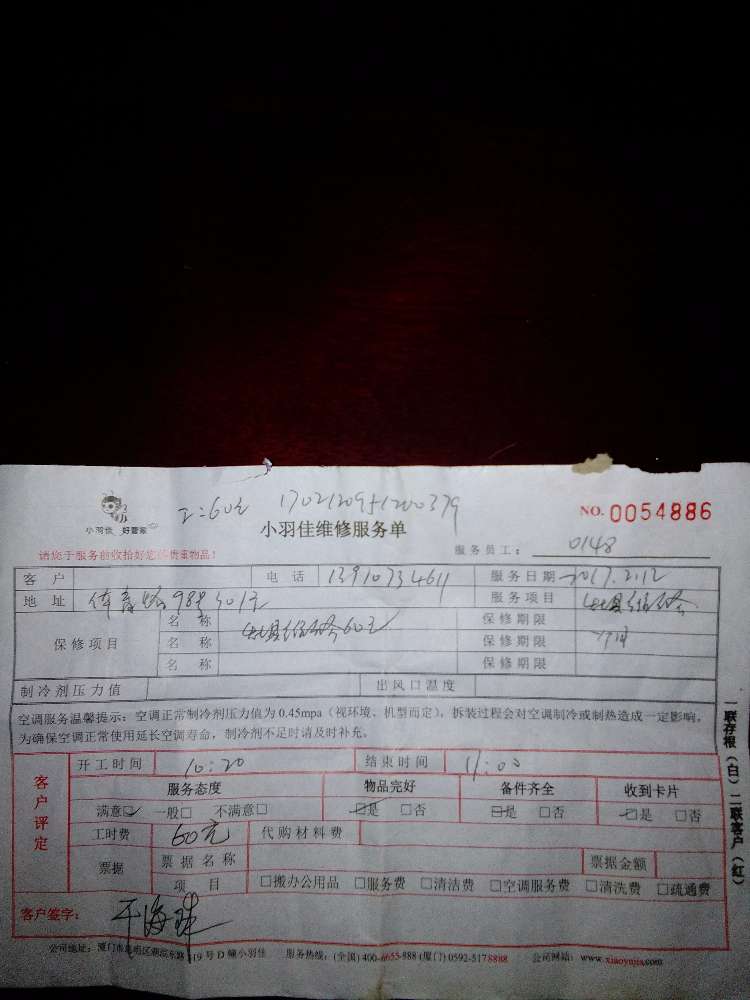 工:60元 1702120951200379
小羽佳 好管家
小羽佳维修服务单
NO. 0054886
请您于服务前收拾好您的贵重物品!
服务员工: 0148
客户 电话 13910734611 服务日期 2017.2.12
地址 体育路98号501室 服务项目
保修项目 名称 60元 保修期限
名称 保修期限
名称 保修期限
制冷剂压力值 出风口温度
空调服务温馨提示:空调正常制冷剂压力值为0.45mpa(视环境、机型而定),拆装过程会对空调制冷或制热造成一定影响。
为确保空调正常使用延长空调寿命,制冷剂不足时请及时补充。
客户评定
开工时间 10:20 结束时间 11:00
服务态度 物品完好 备件齐全 收到卡片
满意☑ 一般□ 不满意□ ☑是 □否 ☑是 □否 ☑是 □否
工时费 60元 代购材料费
票据 票据名称 票据金额
项目 □搬办公用品 □服务费 □清洁费 □空调服务费 □清洗费 □疏通费
客户签字:
公司地址:厦门市思明区湖滨东路319号D幢小羽佳 服务热线:(全国)400-6655-888 (厦门)0592-5178888 公司网站:www.xiaoyujia.com
一联存根(白)二联客户(红)